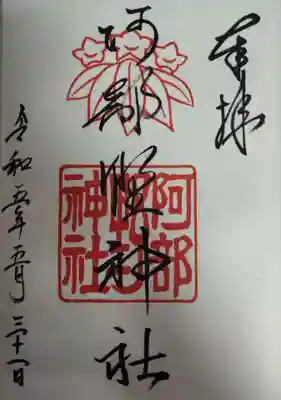 奉拝
阿部野神社
令和五年五月三十一日
阿部野神社